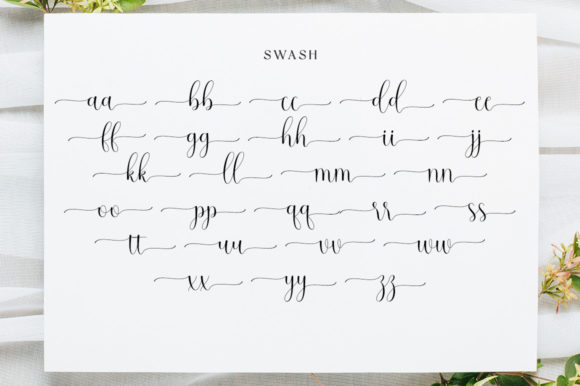 SWASH
aa bb cc dd ee
ff gg hh ii jj
kk ll mm nn
oo pp qq rr ss
tt uu vv ww
xx yy zz